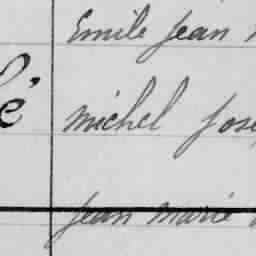 Emile Jean
Michel
Jean Marie